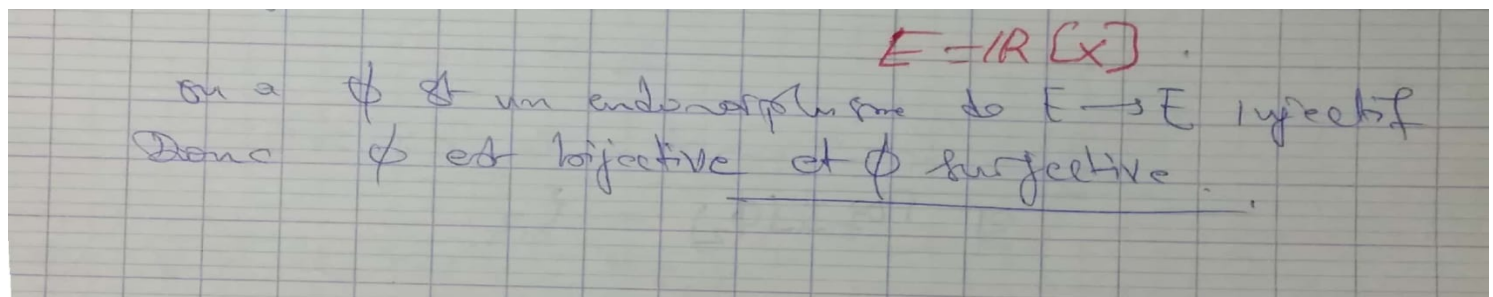 E = IR [X].
on a ϕ est un endomorphisme de E → E injectif
Donc ϕ est bijective et ϕ surjective.